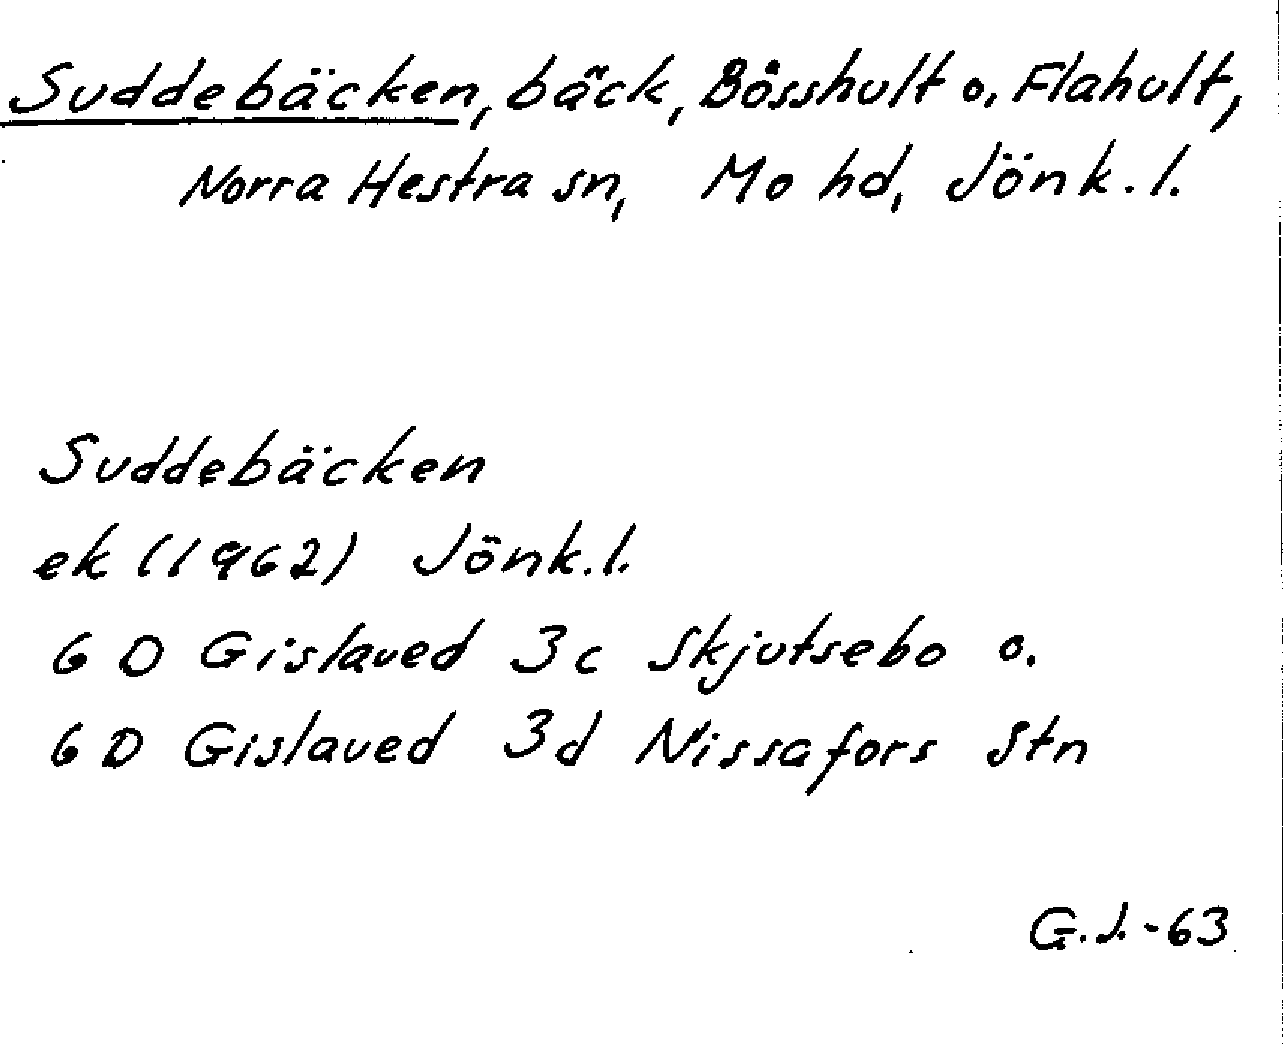 Suddebäcken, bäck, Bösshult o. Flahult,
Norra Hestra sn, Mo hd, Jönk. l.
Suddebäcken
ek (1962) Jönk. l.
6 D Gislaved 3c Skjutsebo o.
6 D Gislaved 3d Nissafors Stn
G.J.-63